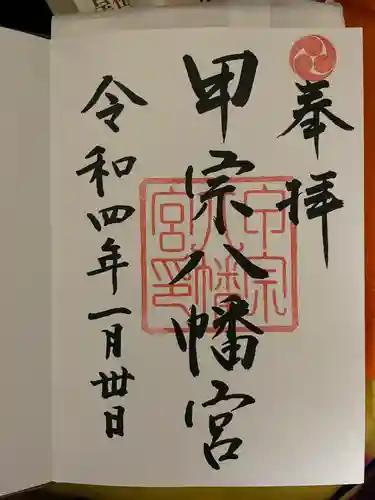 奉拝
甲宗八幡宮
甲宗八幡宮印
令和四年一月丗日